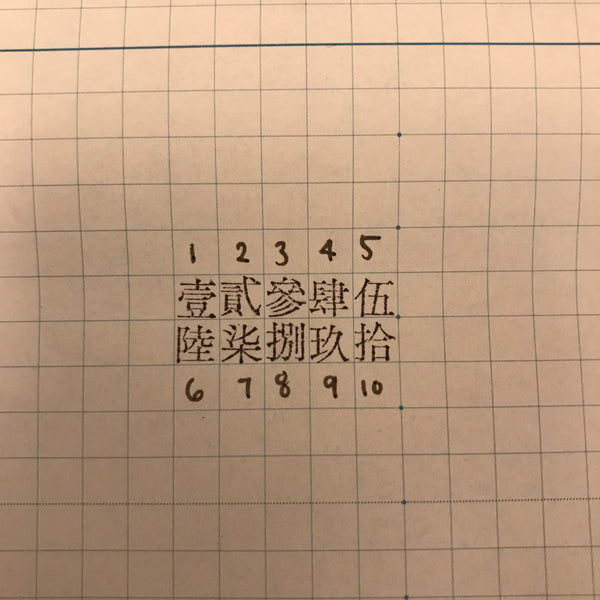 1 2 3 4 5
壹貳參肆伍
陸柒捌玖拾
6 7 8 9 10